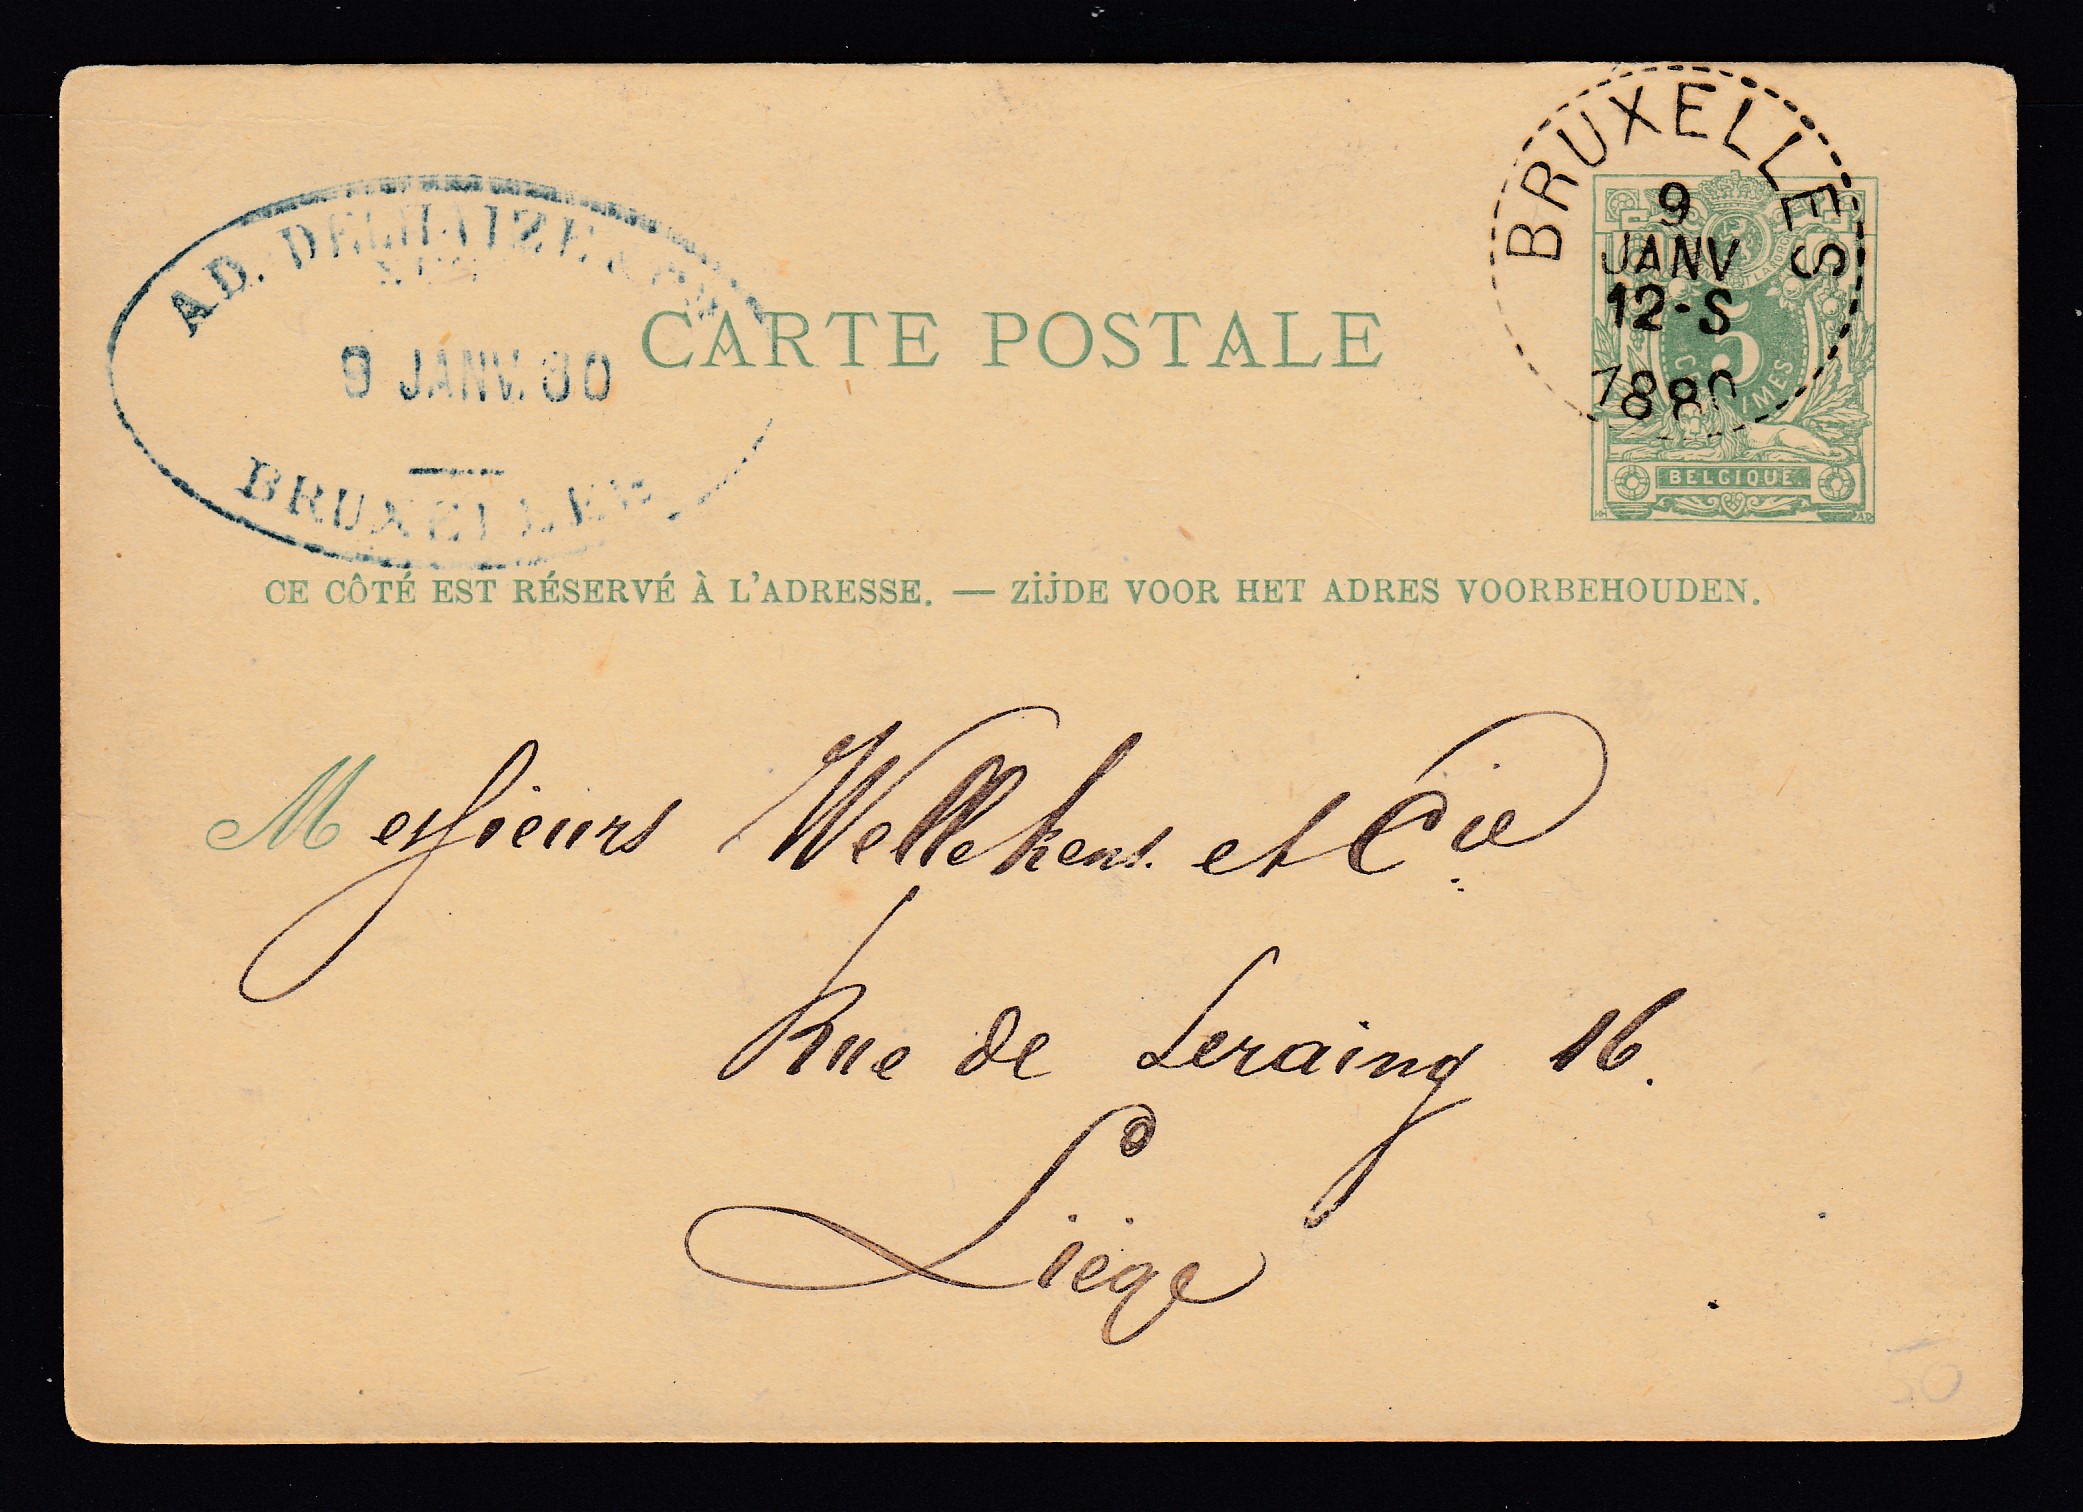 AD. DELHAIZE & Cie
9 JANV. 80
BRUXELLES
CARTE POSTALE
BRUXELLES
9
JANV
12-S
1880
5
BELGIQUE
CE CÔTÉ EST RÉSERVÉ À L'ADRESSE. — ZIJDE VOOR HET ADRES VOORBEHOUDEN.
Messieurs Wellekens. et Cie
Rue de Seraing 16.
Liége